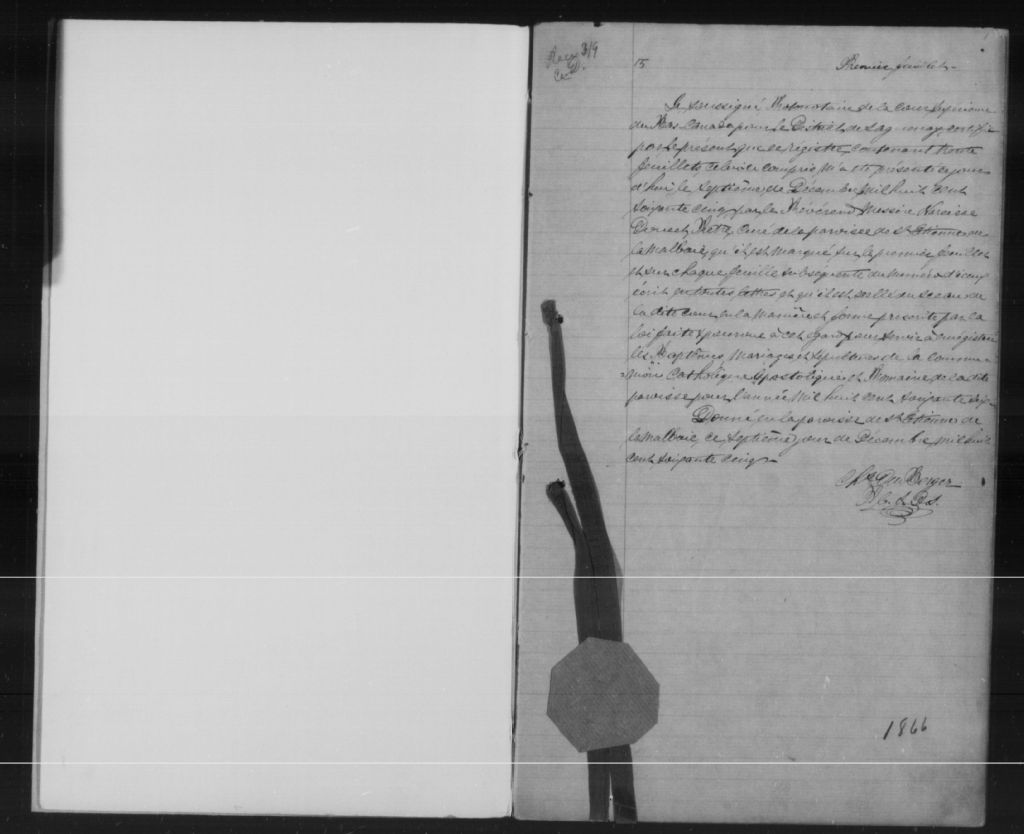 Reg 319
15
Premier feuillet
Le soussigné Protonotaire de la Cour Supérieure
du Bas Canada pour le District de Saguenay, certifie
par le présent que ce registre contenant trente
feuillets celui-ci compris m'a été présenté ce jour
d'hui le septième de Décembre mil huit cent
soixante cinq par le Révérend Messire Narcisse
Doucet Ptre curé de la paroisse de St Etienne de
la Malbaie, qu'il est marqué sur le premier feuillet
et sur chaque feuille subséquente du numéro d'iceux
écrit en toutes lettres et qu'il est scellé du sceau de
la dite cour en la manière et forme prescrite par la
loi faite et pourvue à cet égard pour servir à enrégistrer
les Baptêmes, Mariages et Sépultures de la Commu-
-nion Catholique Apostolique et Romaine de la dite
paroisse pour l'année mil huit cent soixante six
Donné en la paroisse de St Etienne de
la Malbaie, ce septième jour de Décembre mil huit
cent soixante cinq
Chs Du Berger
P. C. S. D. S.
1866